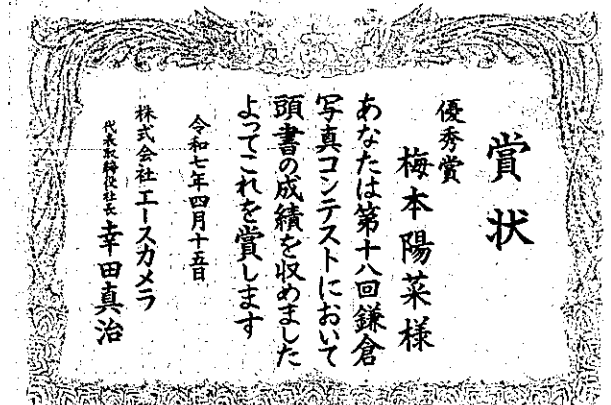 賞状
優秀賞
梅本陽菜様
あなたは第十八回鎌倉
写真コンテストにおいて
頭書の成績を収めました
よってこれを賞します
令和七年四月十五日
株式会社エースカメラ
代表取締役社長 幸田真治